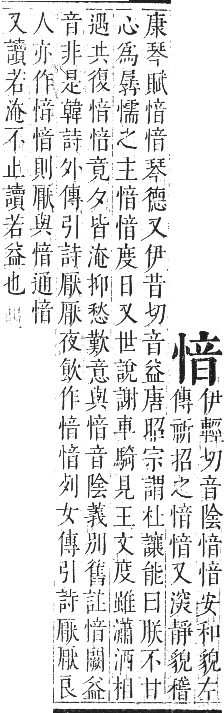 愔
伊輕切音陰愔愔安和貌左
傳祈招之愔愔又深靜貌稽
康琴賦愔愔琴德又伊昔切音益唐昭宗謂杜讓能曰朕不甘
心為孱懦之主愔愔度日又世說謝車騎見王文度雖瀟洒相
遇共復愔愔竟夕皆淹抑愁歎意與愔音陰義別舊註愔闕益
音非是韓詩外傳引詩厭厭夜飲作愔愔列女傳引詩厭厭良
人亦作愔愔則厭與愔通愔
又讀若淹不止讀若益也